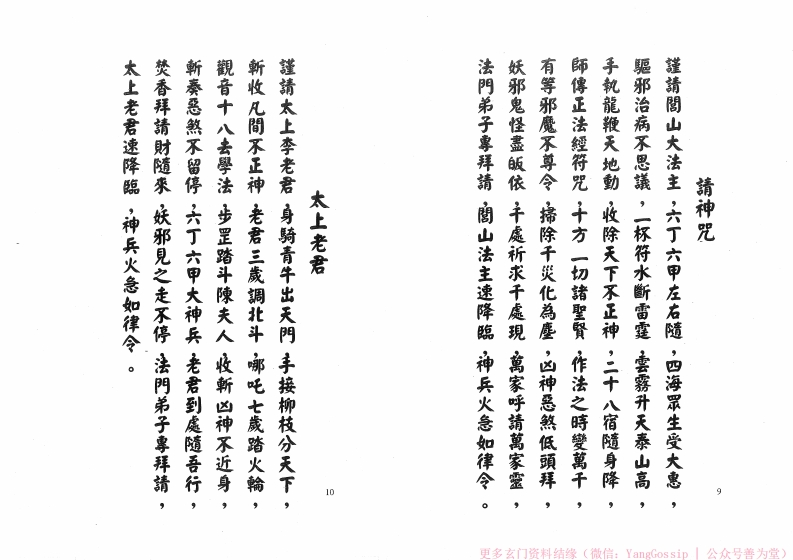 請神咒
謹請閭山大法主，六丁六甲左右隨，四海眾生受大惠，
驅邪治病不思議，一杯符水斷雷霆，雲霧升天泰山高，
手執龍鞭天地動，收除天下不正神，二十八宿隨身降，
師傳正法經符咒，十方一切諸聖賢，作法之時變萬千，
有等邪魔不尊令，掃除千災化為塵，凶神惡煞低頭拜，
妖邪鬼怪盡皈依，千處祈求千處現，萬家呼請萬家靈，
法門弟子專拜請，閭山法主速降臨，神兵火急如律令。
9
太上老君
謹請太上李老君，身騎青牛出天門，手接柳枝分天下，
斬收凡間不正神，老君三歲調北斗，哪吒七歲踏火輪，
觀音十八去學法，步罡踏斗陳夫人，收斬凶神不近身，
斬奏惡煞不留停，六丁六甲大神兵，老君到處隨吾行，
焚香拜請財隨來，妖邪見之走不停，法門弟子專拜請，
太上老君速降臨，神兵火急如律令。
10
更多玄门资料结缘（微信：YangGossip | 公众号善为堂）